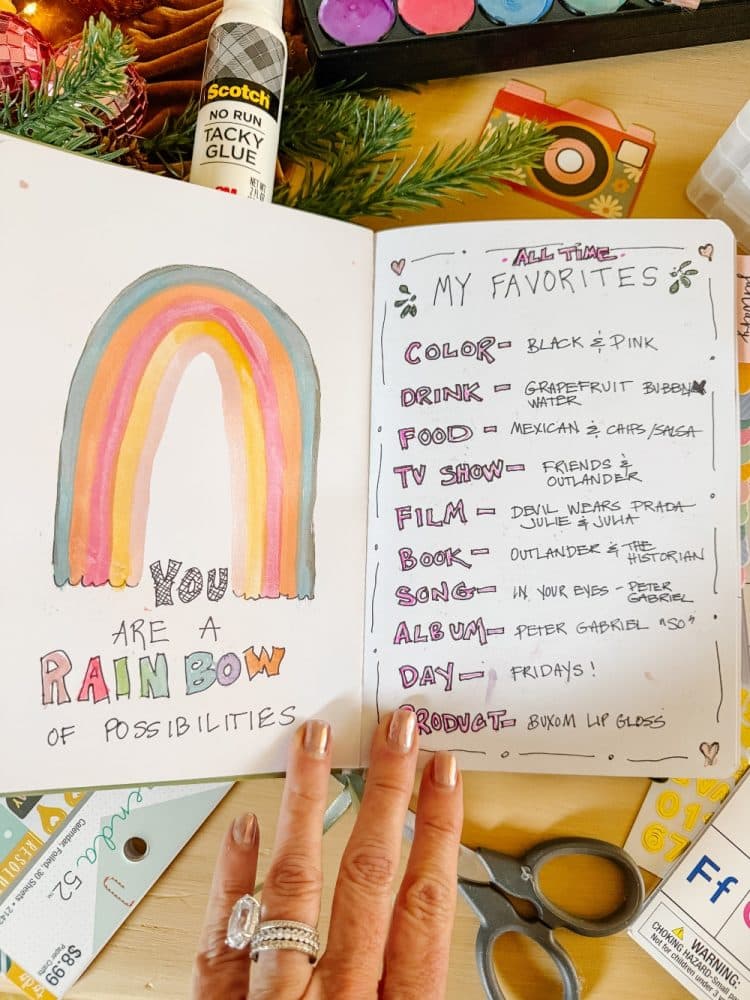 Scotch
NO RUN
TACKY
GLUE
3M
YOU
ARE A
RAINBOW
OF POSSIBILITIES
ALL TIME
MY FAVORITES
COLOR- BLACK & PINK
DRINK - GRAPEFRUIT BUBBLY
WATER
FOOD - MEXICAN & CHIPS/SALSA
TV SHOW- FRIENDS &
OUTLANDER
FILM - DEVIL WEARS PRADA
JULIE & JULIA
BOOK- OUTLANDER & THE
HISTORIAN
SONG- IN YOUR EYES - PETER
GABRIEL
ALBUM- PETER GABRIEL "SO"
DAY- FRIDAYS!
PRODUCT- BUXOM LIP GLOSS
enda 52
Calendar, Foiled, 30 Sheets
$8.99
Paper Crafts
67
Ff
WARNING:
CHOKING HAZARD-Small
Not for children under 3